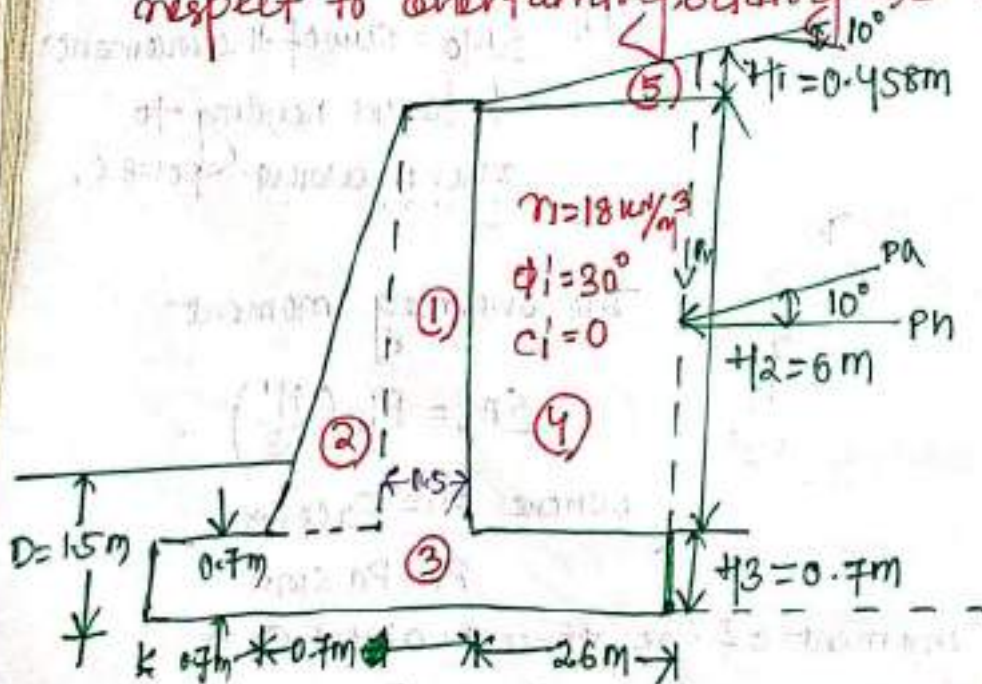 respect to overturning, sliding
10°
⑤
H1 = 0.458m
γ1 = 18 kN/m³
ϕ1' = 30°
c1' = 0
Pv
Pa
10°
Ph
①
H2 = 6m
②
④
0.5
D = 1.5m
0.7m
③
H3 = 0.7m
0.7m
0.7m
2.6m